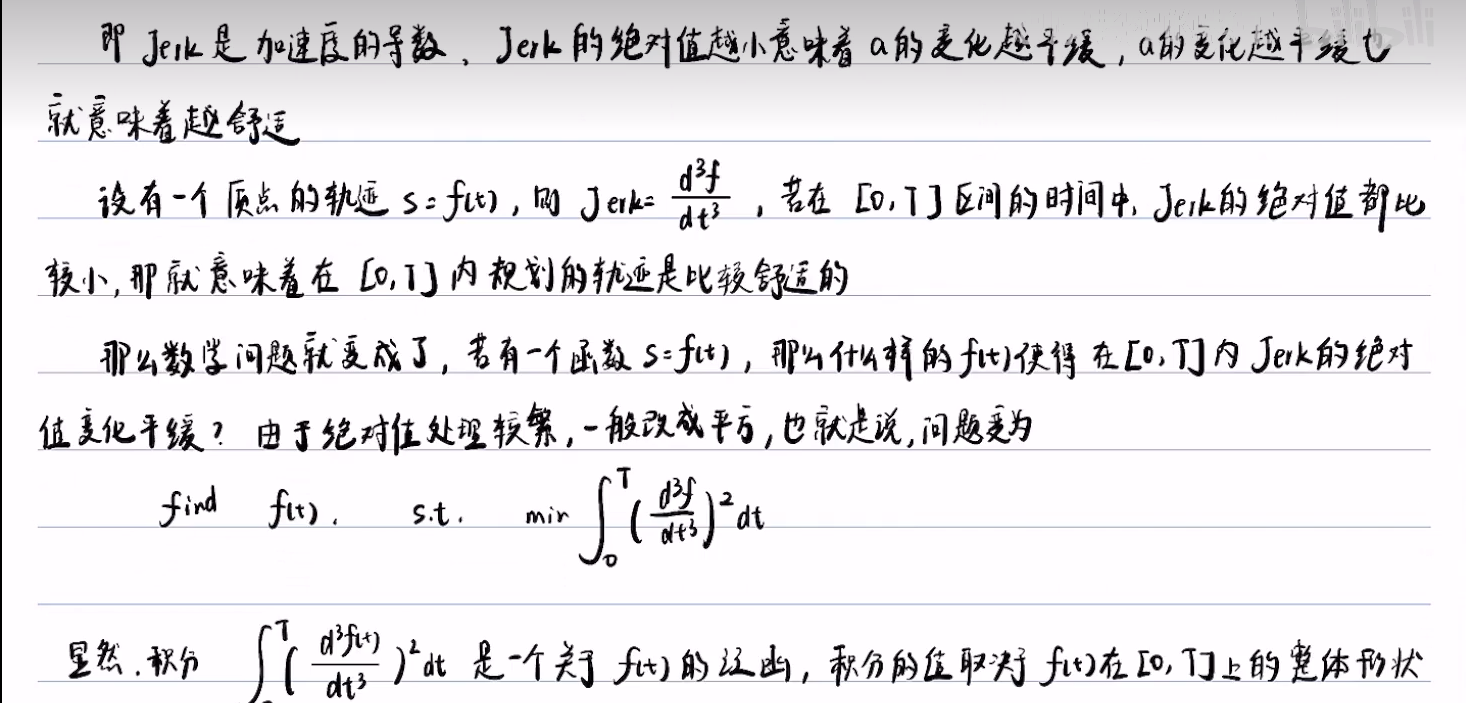 即 Jerk 是加速度的导数、Jerk 的绝对值越小意味着 a 的变化越平缓，a 的变化越平缓也
就意味着越舒适
设有一个质点的轨迹 s = f(t)，则 Jerk = d³f/dt³，若在 [0,T] 区间的时间中，Jerk 的绝对值都比
较小，那就意味着在 [0,T] 内规划的轨迹是比较舒适的
那么数学问题就变成了，若有一个函数 s = f(t)，那么什么样的 f(t) 使得在 [0,T] 内 Jerk 的绝对
值变化平缓？由于绝对值处理较繁，一般改成平方，也就是说，问题变为
find f(t). s.t. min ∫₀ᵀ (d³f/dt³)² dt
显然.积分 ∫₀ᵀ (d³f(t)/dt³)² dt 是一个关于 f(t) 的泛函，积分的值取决于 f(t) 在 [0,T] 上的整体形状